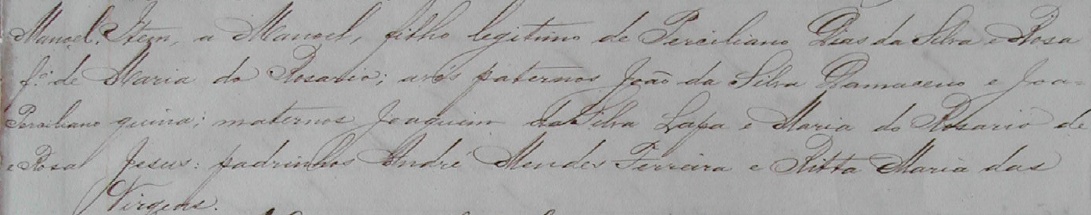 Manoel. Item, a Manoel, filho legitimo de Perciliano Dias da Silva e Rosa
fº. de Maria do Rosario; avós paternos João da Silva Damaceno e Joa-
Perciliano quina; maternos Joaquim da Silva Lapa e Maria do Rosario de
e Rosa Jesus: padrinhos André Mendes Ferreira e Ritta Maria das
Virgens.